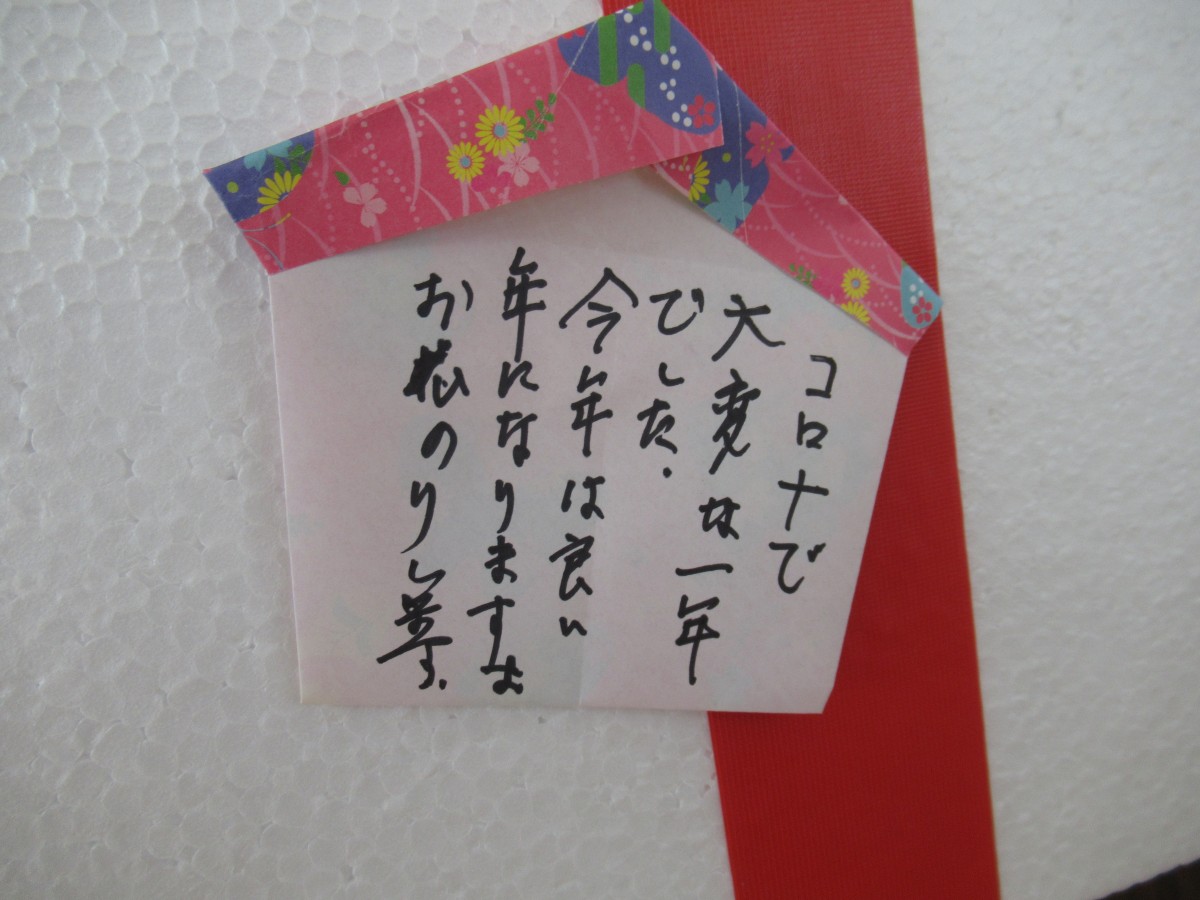 コロナで
大変な一年
でした.
今年は良い
年になりますよ
おのりし